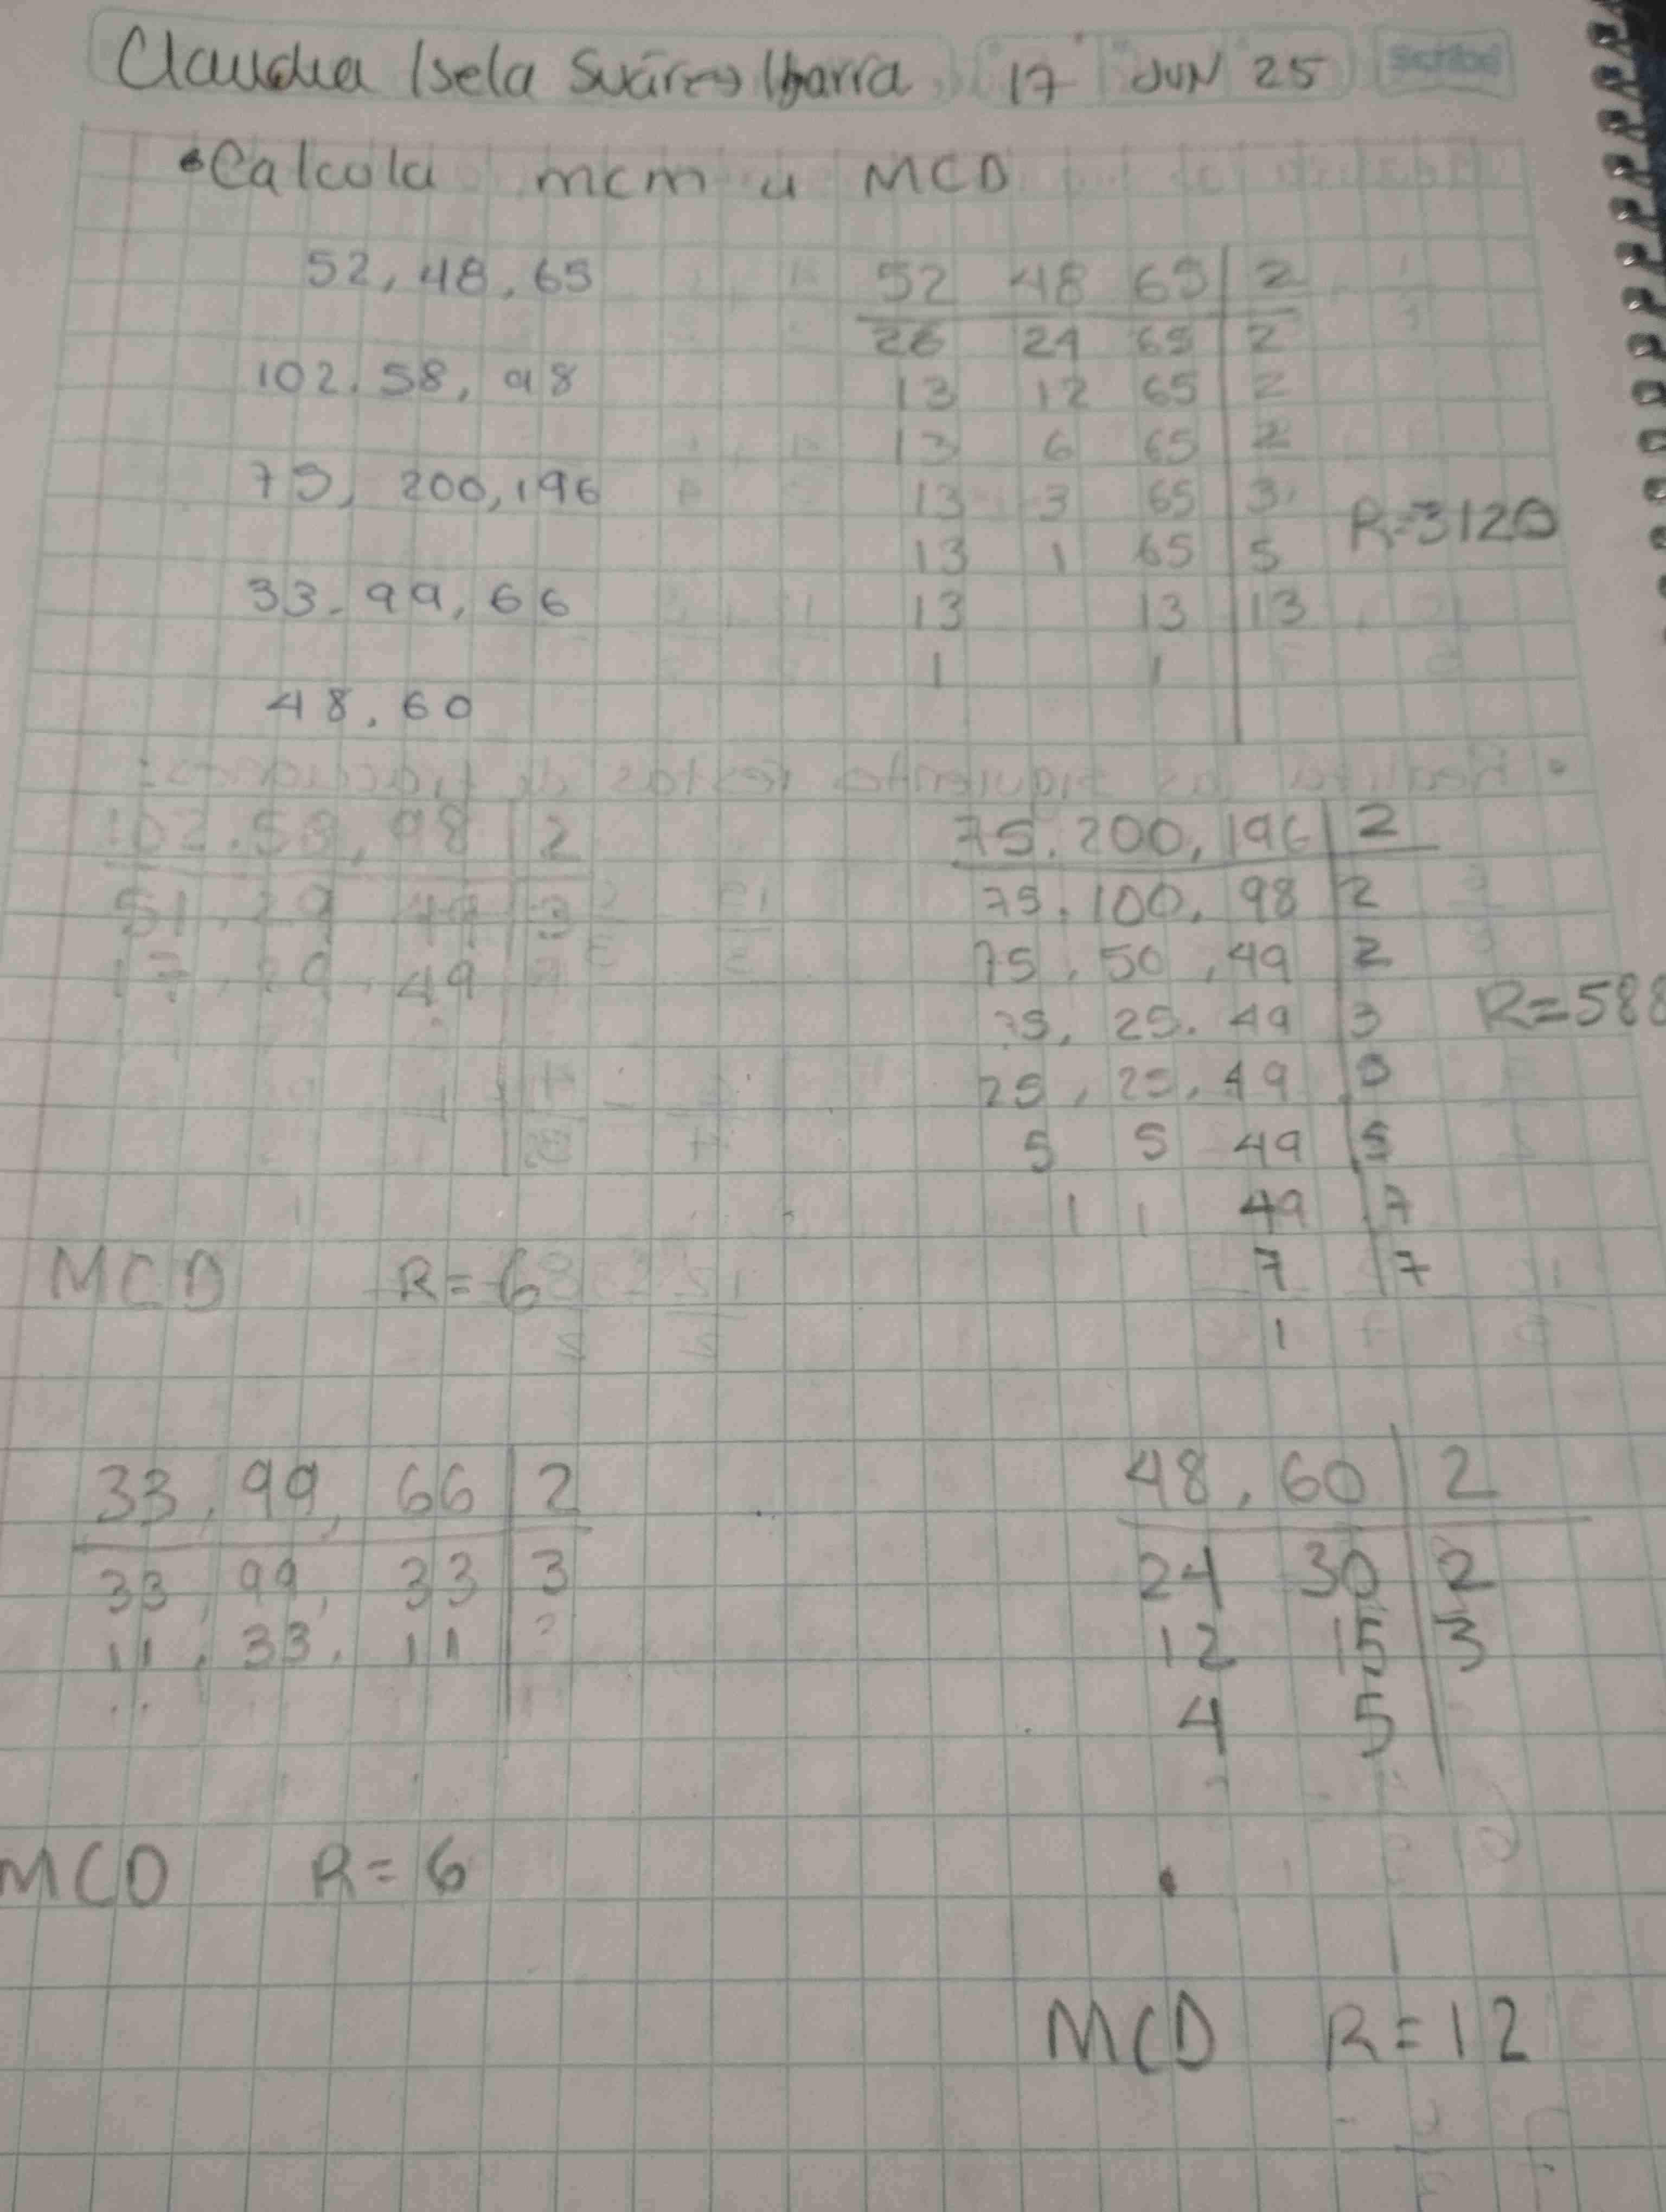 Claudia Isela Suárez Ibarra 17 JUN 25 Scribe
•Calcola mcm y MCD
52, 48, 65
102. 58, 98
75, 200, 196
33. 99, 66
48. 60
52 48 65 | 2
26 24 65 | 2
13 12 65 | 2
13 6 65 | 2
13 3 65 | 3
13 1 65 | 5
R=3120
13 13 | 13
1 1
102.58, 98 | 2
51.29 49 | 3
17.29.49
MCD R=6
75.200,196 | 2
75.100.98 | 2
75,50,49 | 2
R=588
75, 25.49 | 3
25, 25.49 | 5
5 5 49 | 5
1 1 49 | 7
7 | 7
1
33, 99, 66 | 2
33, 99, 33 | 3
11, 33. 11
MCD R=6
48, 60 | 2
24 30 | 2
12 15 | 3
4 5
MCD R=12